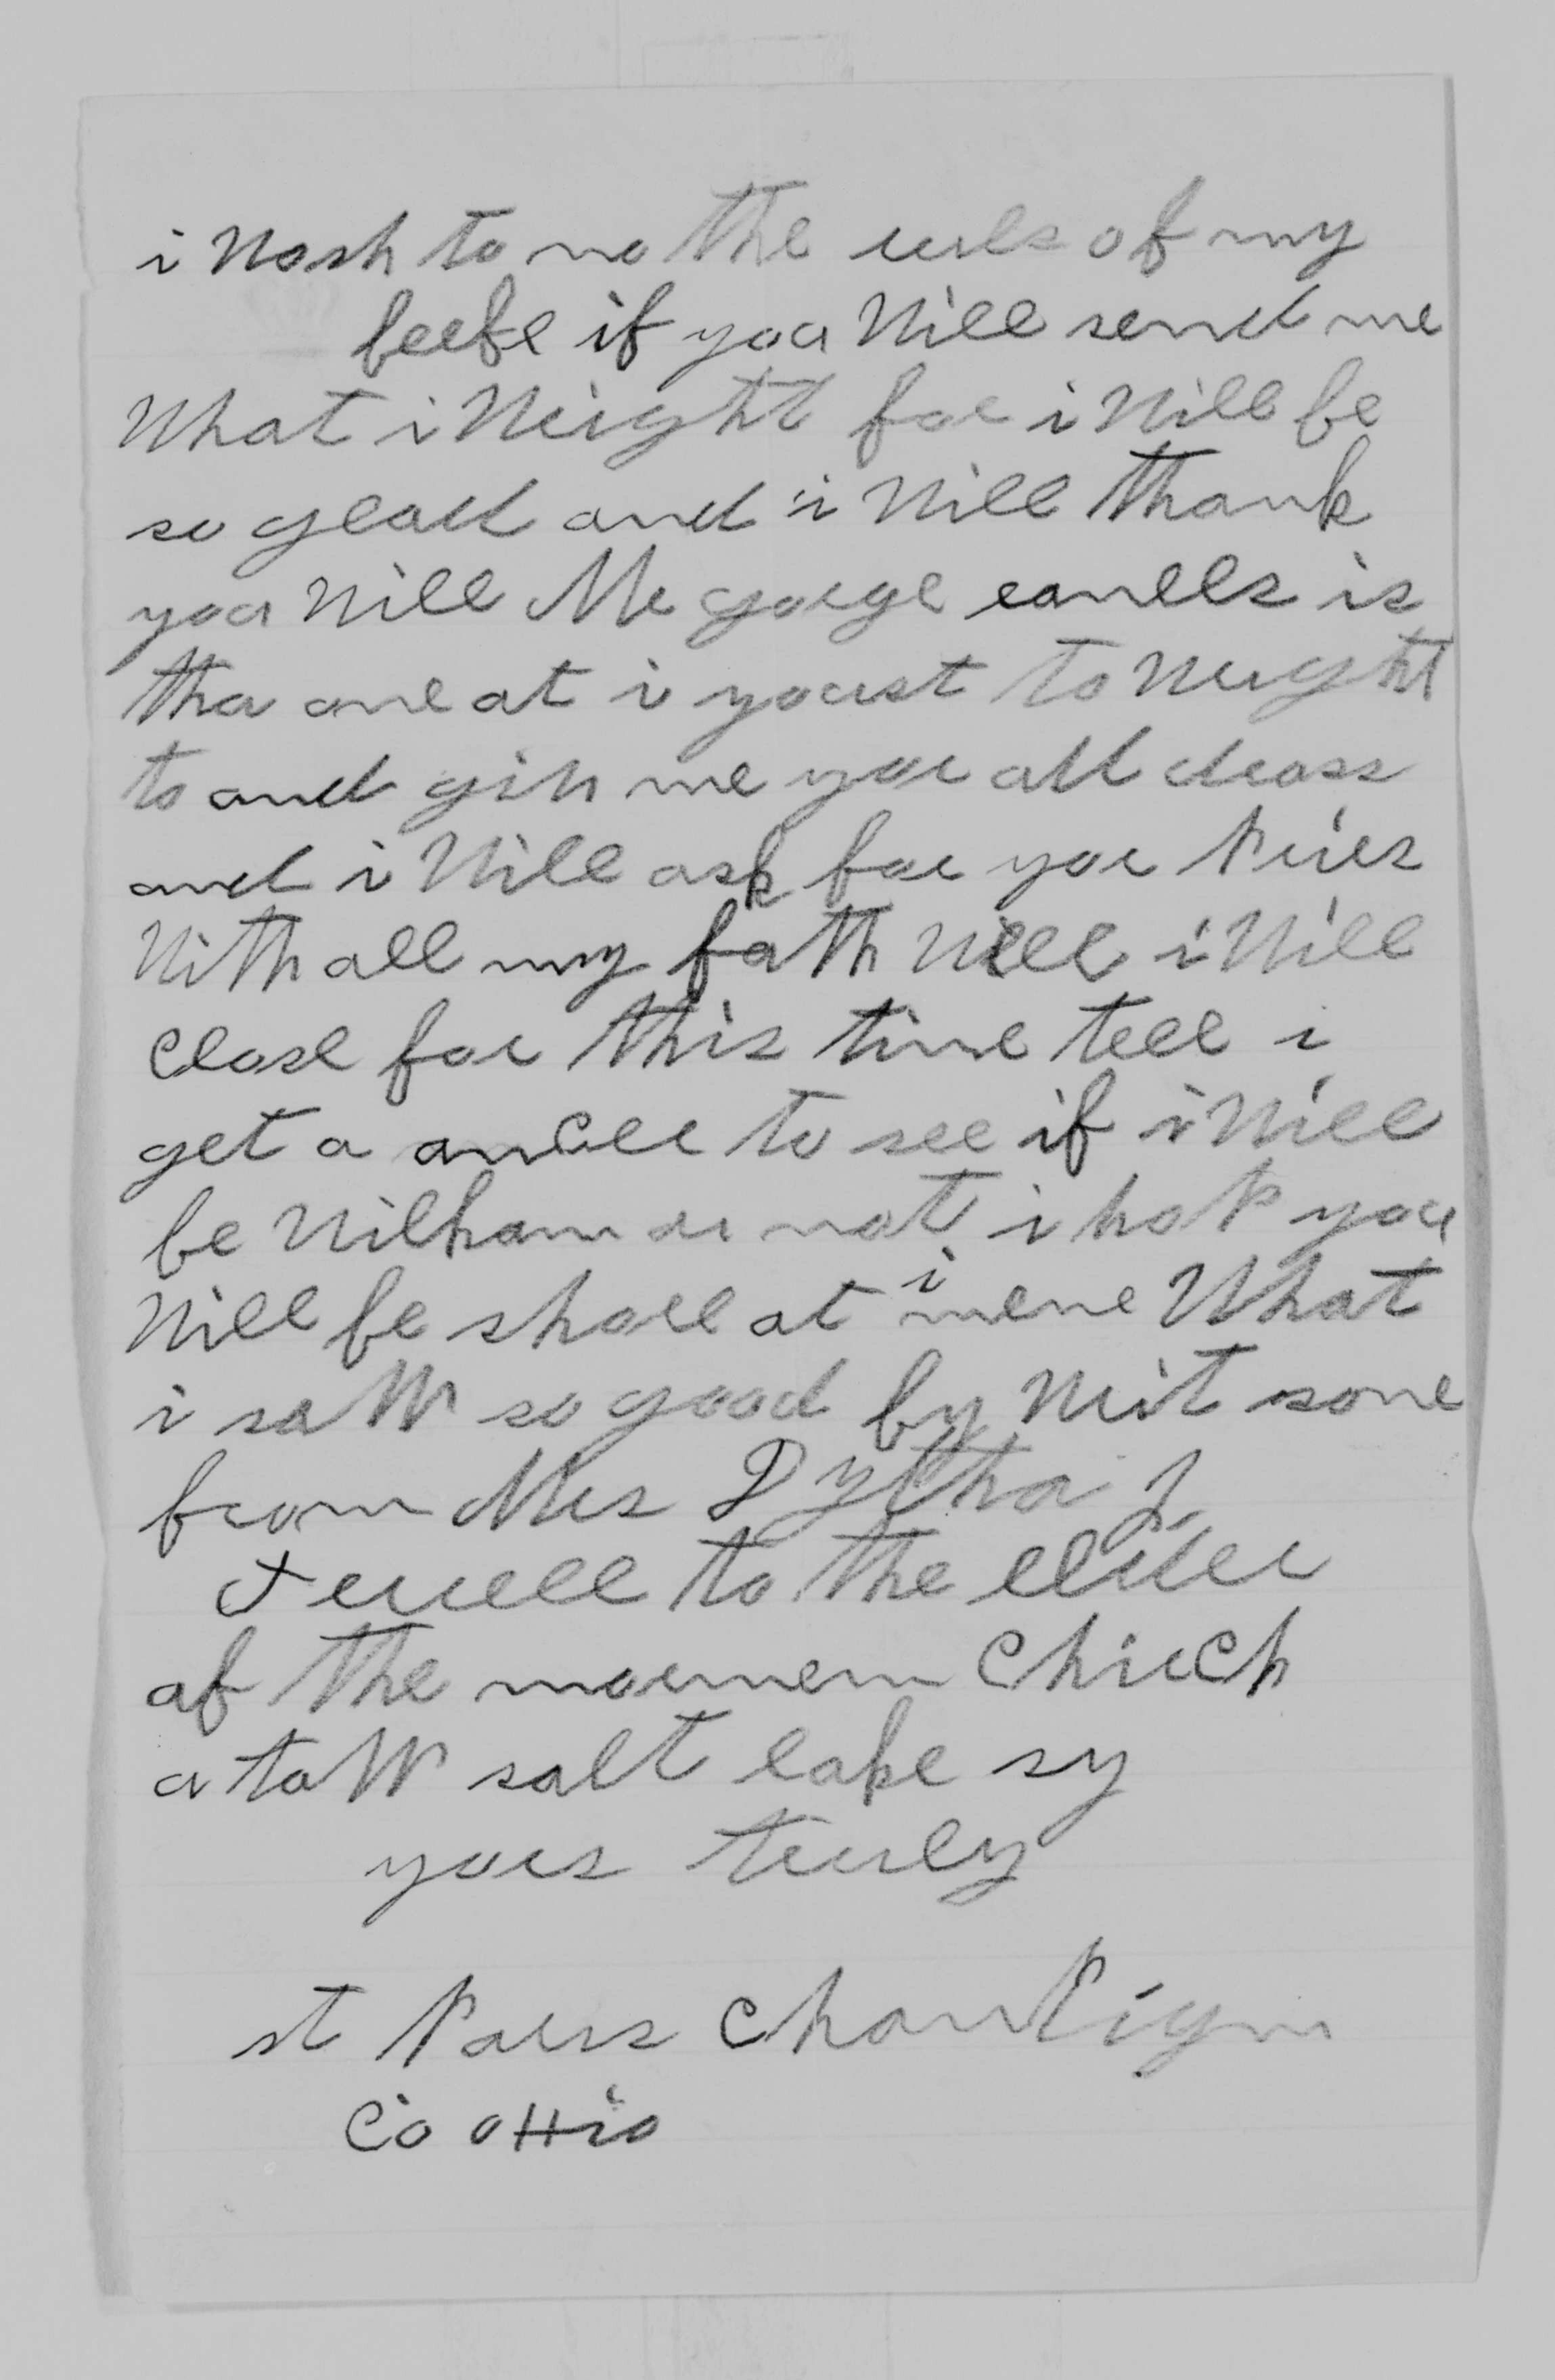 i Wosh to no the rules of my
beefe if you Will send me
What i Weight for i Will be
so glad and i Will thank
you Will Mr gorge canlls is
tha one at i youst to Wright
to and giv me yor add drass
and i Will ask for yor Priers
With all my fath Will i Will
Close for this time tell i
get a ancer to see if i Will
be Wilkam or not i hop you
Will be shore at i mene What
i saW so good by Writ sone
from Mrs Dytha J
Terrell to the elder
of the mormem Chirch
a toW salt lake sy
yours truly
st Pares Chanpign
Co oHio